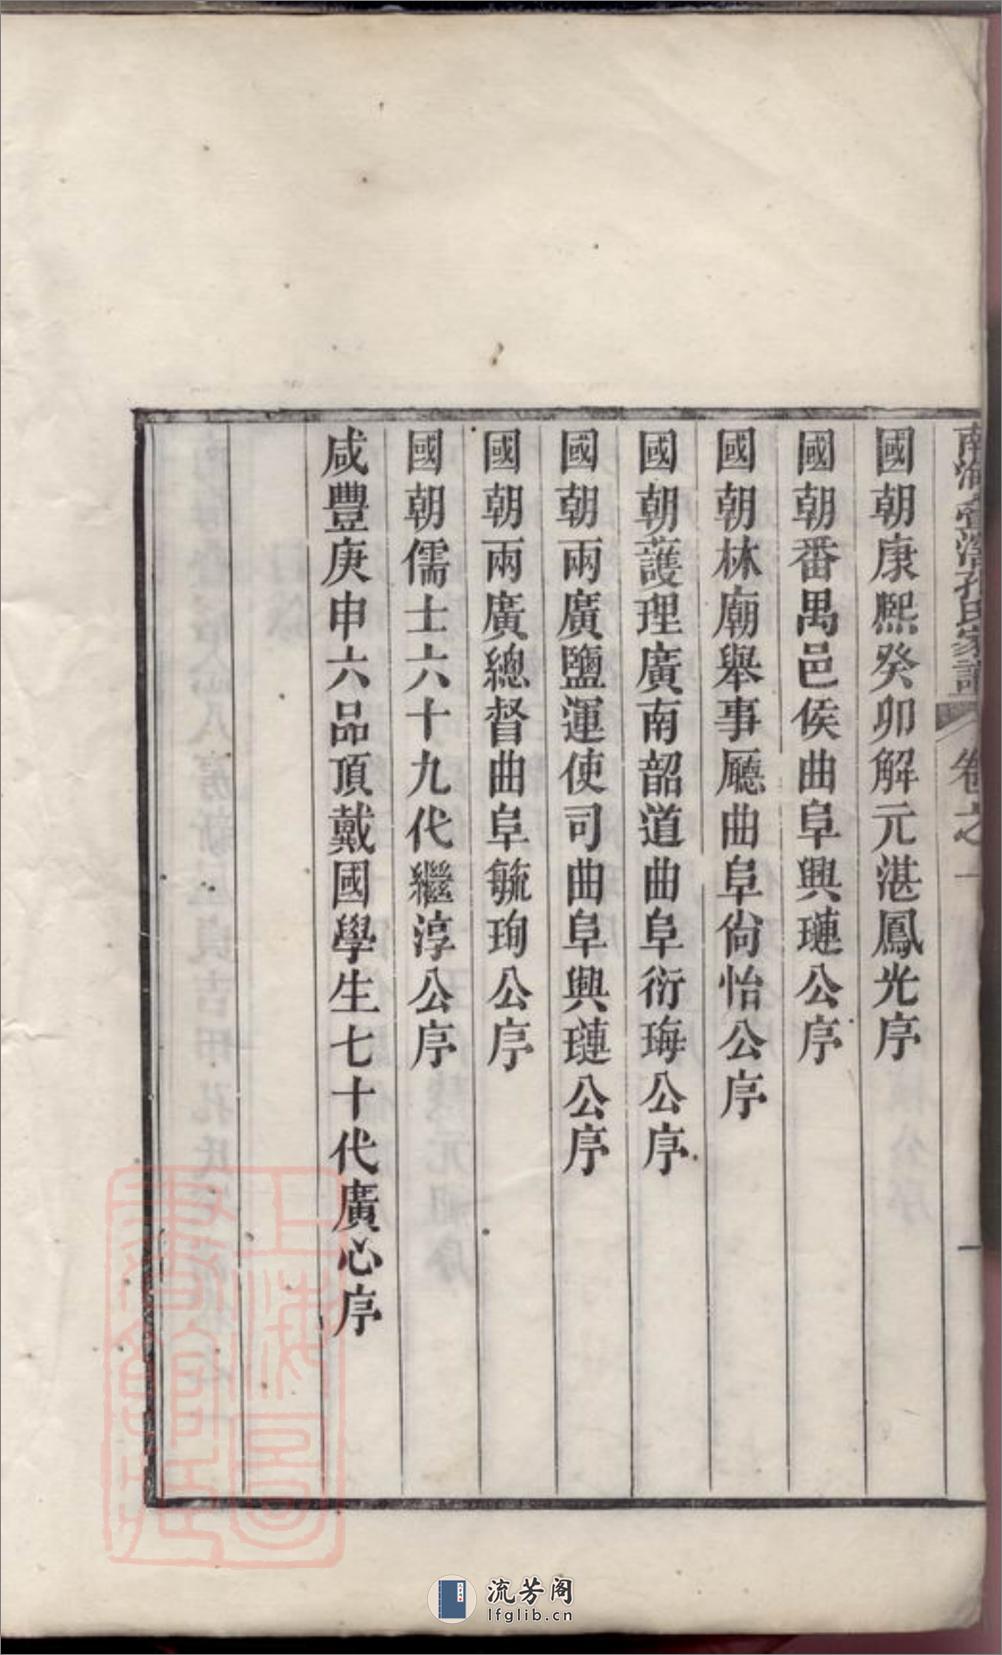 南海叠滘孔氏家譜 卷之一 一
國朝康熙癸卯解元湛鳳光序
國朝番禺邑侯曲阜興璉公序
國朝林廟舉事廳曲阜尙怡公序
國朝護理廣南韶道曲阜衍珻公序
國朝兩廣鹽運使司曲阜興璉公序
國朝兩廣總督曲阜毓珣公序
國朝儒士六十九代繼淳公序
咸豐庚申六品頂戴國學生七十代廣心序
上海圖書館藏
流芳阁
lfglib.cn